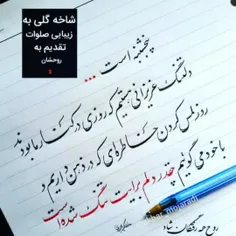 شاخه گلی به
زیبایی صلوات
تقدیم به
روحشان
پنجشنبه است ...
دلتنگ عزیزانی هستیم که روزی در کنار ما بودند
روز لمس کردن خاطره‌ای که در ذهن داریم و
با خود می‌گوییم چقدر دلم برایت تنگ شده است
روح همه رفتگان شاد